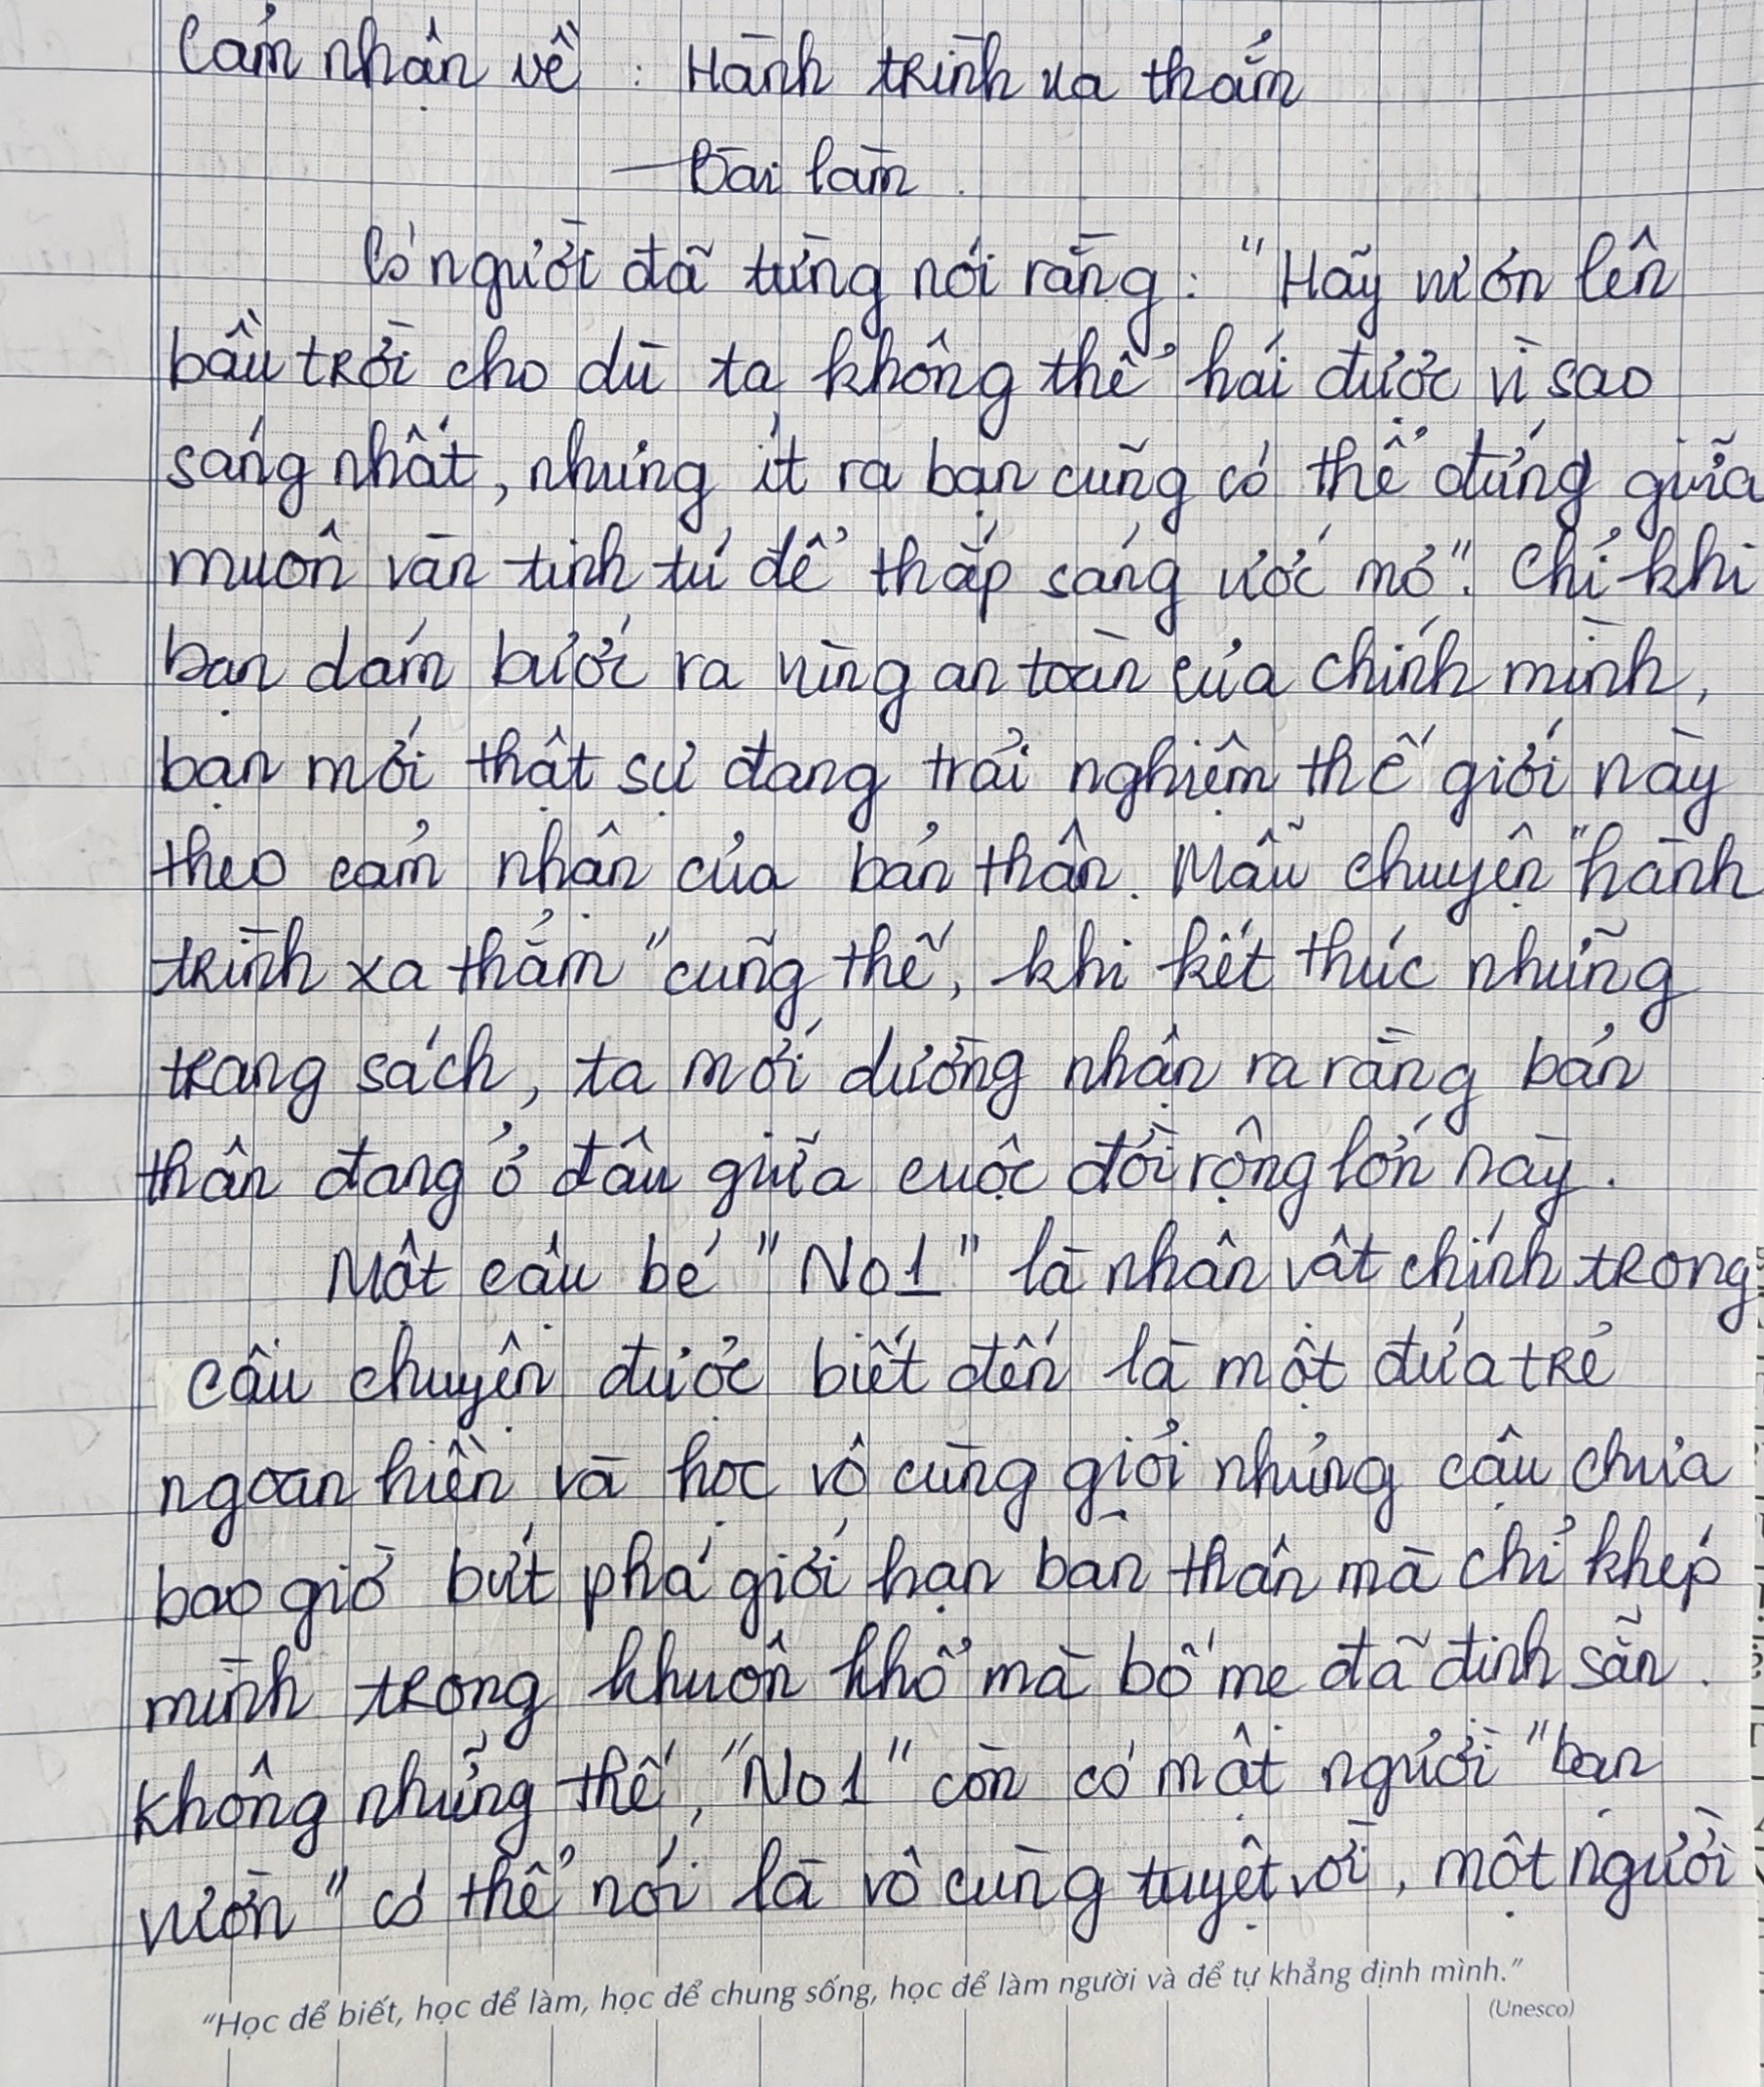 Cảm nhận về : Hành trình xa thẳm
Bài làm
Có người đã từng nói rằng: "Hãy vươn lên
bầu trời cho dù ta không thể hái được vì sao
sáng nhất, nhưng ít ra bạn cũng có thể đứng giữa
muôn vàn tinh tú để thắp sáng ước mơ". Chỉ khi
bạn dám bước ra vùng an toàn của chính mình,
bạn mới thật sự đang trải nghiệm thế giới này
theo cảm nhận của bản thân. Mẩu chuyện "hành
trình xa thẳm" cũng thế, khi kết thúc những
trang sách, ta mới dường nhận ra rằng bản
thân đang ở đâu giữa cuộc đời rộng lớn này.
Một cậu bé "No1" là nhân vật chính trong
câu chuyện được biết đến là một đứa trẻ
ngoan hiền và học vô cùng giỏi nhưng cậu chưa
bao giờ bứt phá giới hạn bản thân mà chỉ khép
mình trong khuôn khổ mà bố mẹ đã định sẵn.
Không những thế, "No1" còn có một người "bạn
vườn" có thể nói là vô cùng tuyệt vời, một người
"Học để biết, học để làm, học để chung sống, học để làm người và để tự khẳng định mình."
(Unesco)